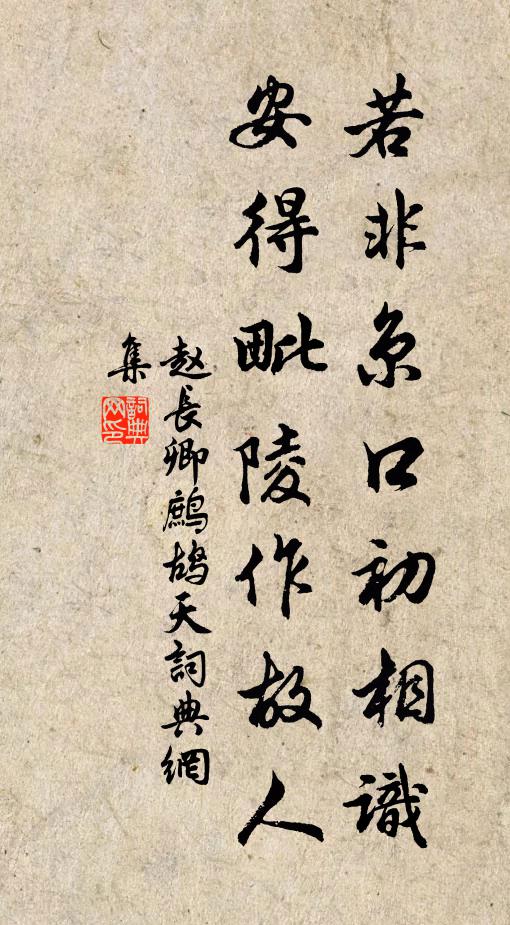 若非京口初相識
安得毗陵作故人
赵長卿鷓鴣天詞典網
集
詞典網印